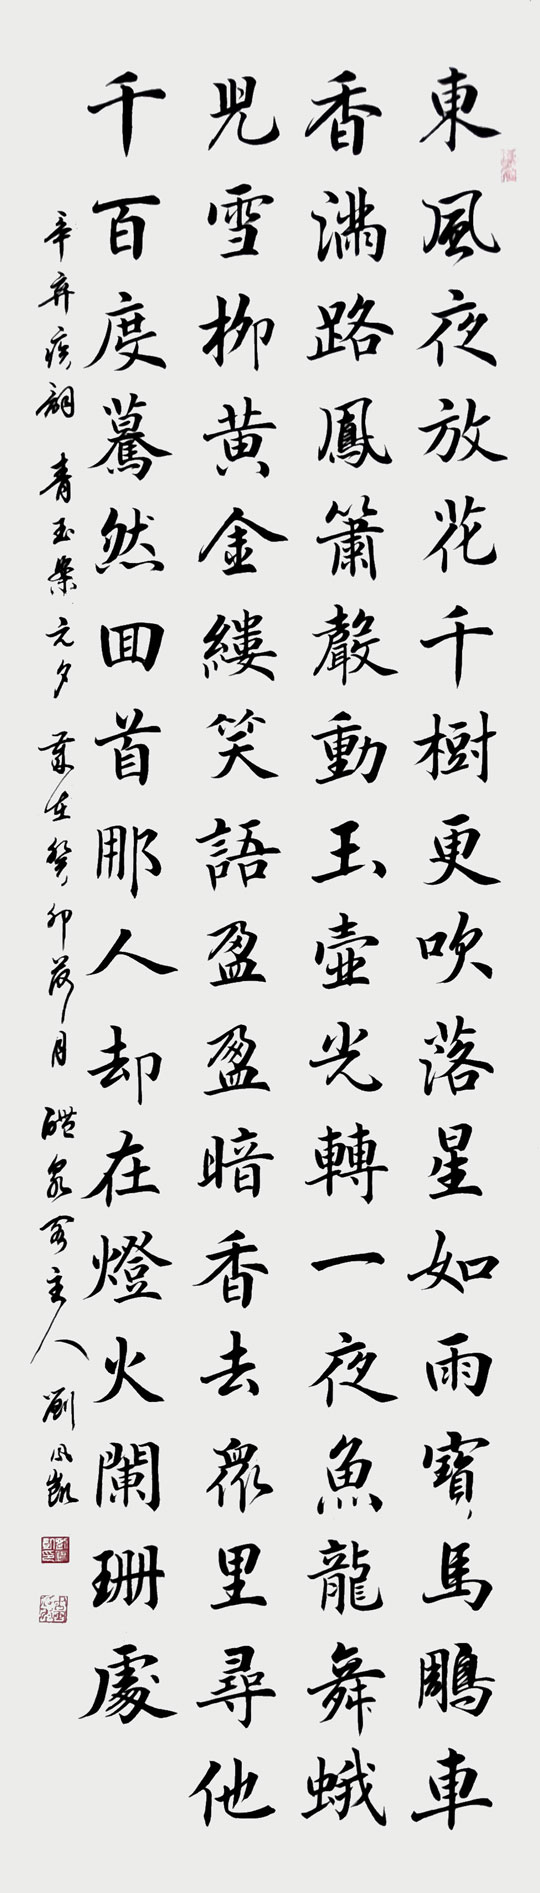 東風夜放花千樹更吹落星如雨寶馬鵰車
香滿路鳳簫聲動玉壺光轉一夜魚龍舞蛾
兒雪柳黃金縷笑語盈盈暗香去眾里尋他
千百度驀然回首那人却在燈火闌珊處
辛弃疾詞 青玉案 元夕 歲在癸卯 月 醴泉 主人 劉鳳凱